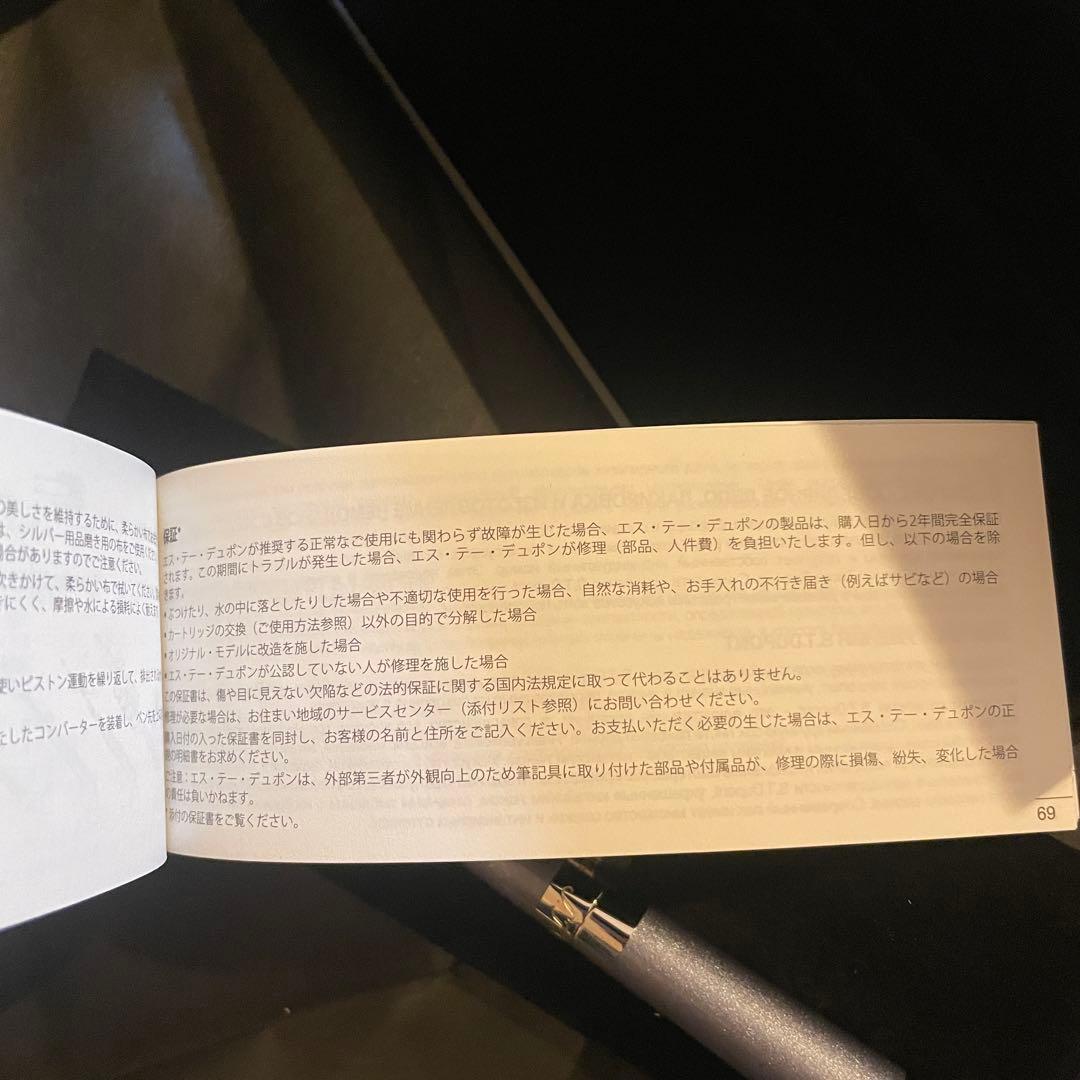 の美しさを維持するために、柔らかい布
は、シルバー用品磨き用の布をご使用ください。
場合がありますのでご注意ください。
吹きかけて、柔らかい布で拭いてください。
にくく、摩擦や水による損耗によく耐えます
使いピストン運動を繰り返して、
としたコンバーターを装着し、ペン先
保証*
エス・テー・デュポンが推奨する正常なご使用にも関わらず故障が生じた場合、エス・テー・デュポンの製品は、購入日から2年間完全保証
されます。この期間にトラブルが発生した場合、エス・テー・デュポンが修理（部品、人件費）を負担いたします。但し、以下の場合を除
きます。
• ぶつけたり、水の中に落としたりした場合や不適切な使用を行った場合、自然な消耗や、お手入れの不行き届き（例えばサビなど）の場合
• カートリッジの交換（ご使用方法参照）以外の目的で分解した場合
• オリジナル・モデルに改造を施した場合
• エス・テー・デュポンが公認していない人が修理を施した場合
この保証書は、傷や目に見えない欠陥などの法的保証に関する国内法規定に取って代わることはありません。
修理が必要な場合は、お住まい地域のサービスセンター（添付リスト参照）にお問い合わせください。
購入日付の入った保証書を同封し、お客様の名前と住所をご記入ください。お支払いただく必要の生じた場合は、エス・テー・デュポンの正
の明細書をお求めください。
ご注意：エス・テー・デュポンは、外部第三者が外観向上のため筆記具に取り付けた部品や付属品が、修理の際に損傷、紛失、変化した場合
の責任は負いかねます。
* 添付の保証書をご覧ください。
69